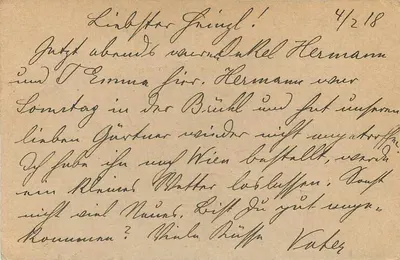 Liebster Heinzl! 4/2 18
Jetzt abends waren Onkel Hermann
und T Emma hier. Hermann war
Samstag in der Brühl und hat unseren
lieben Gärtner wieder nicht angetroffen.
Ich habe ihn nach Wien bestellt, werde
ein kleines Wetter loslassen. Sonst
nicht viel Neues. Bist Du gut ange-
kommen? Viele Küsse Vater